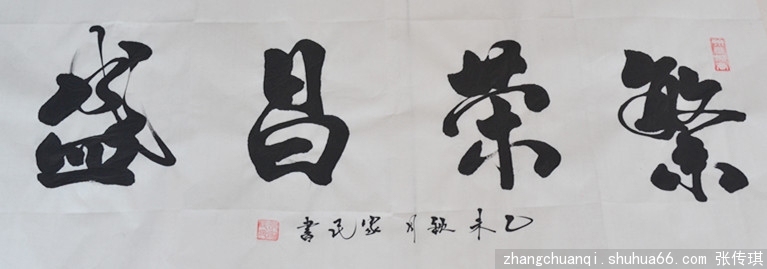 繁荣昌盛
乙未秋月家民書
zhangchuanqi.shuhua66.com 张传琪